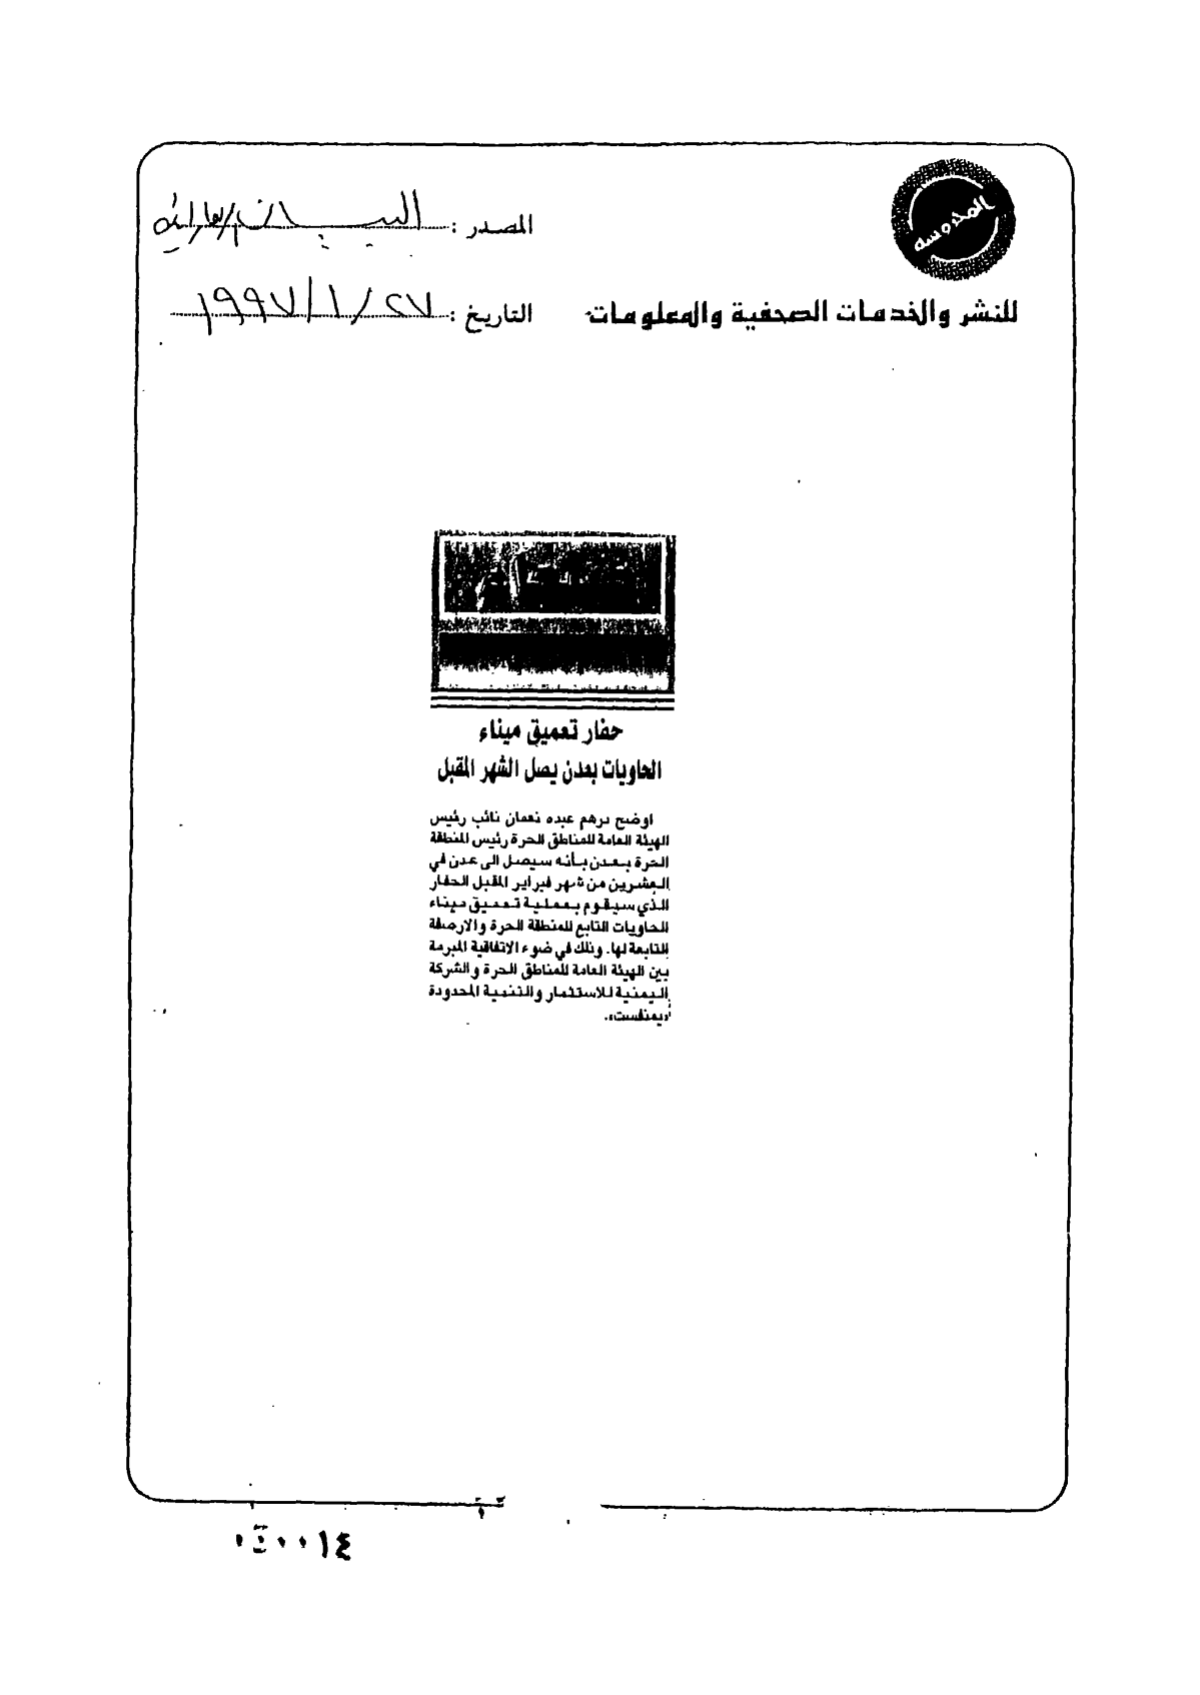 المحروسه
المصدر : البيان الاماراتيه
للنشر والخدمات الصحفية والمعلومات
التاريخ : ٢٧ / ١ / ١٩٩٧
حفار تعميق ميناء
الحاويات بعدن يصل الشهر المقبل
اوضح درهم عبده نعمان نائب رئيس
الهيئة العامة للمناطق الحرة رئيس المنطقة
الحرة بعدن بأنه سيصل الى عدن في
العشرين من شهر فبراير المقبل الحفار
الذي سيقوم بعملية تعميق ميناء
الحاويات التابع للمنطقة الحرة والارصفة
التابعة لها. وذلك في ضوء الاتفاقية المبرمة
بين الهيئة العامة للمناطق الحرة والشركة
اليمنية للاستثمار والتنمية المحدودة
«يمنفست».